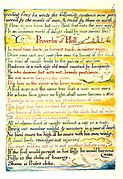 roding fires he wrote the following sentence now per-
cieved by the minds of men, & read by them on earth.
How do you know but ev'ry Bird that cuts the airy way,
Is an immense world of delight, clos'd by your senses five?
Proverbs of Hell
In seed time learn, in harvest teach, in winter enjoy.
Drive your cart and your plow over the bones of the dead.
The road of excess leads to the palace of wisdom.
Prudence is a rich ugly old maid courted by Incapacity.
He who desires but acts not, breeds pestilence.
The cut worm forgives the plow.
Dip him in the river who loves water.
A fool sees not the same tree that a wise man sees.
He whose face gives no light, shall never become a star.
Eternity is in love with the productions of time.
The busy bee has no time for sorrow.
The hours of folly are measur'd by the clock, but of wis-
All wholsom food is caught without a net or a trap.
Bring out number weight & measure in a year of dearth.
No bird soars too high, if he soars with his own wings.
A dead body revenges not injuries.
The most sublime act is to set another before you.
If the fool would persist in his folly he would become wise
Folly is the cloke of knavery.
Shame is Prides cloke.